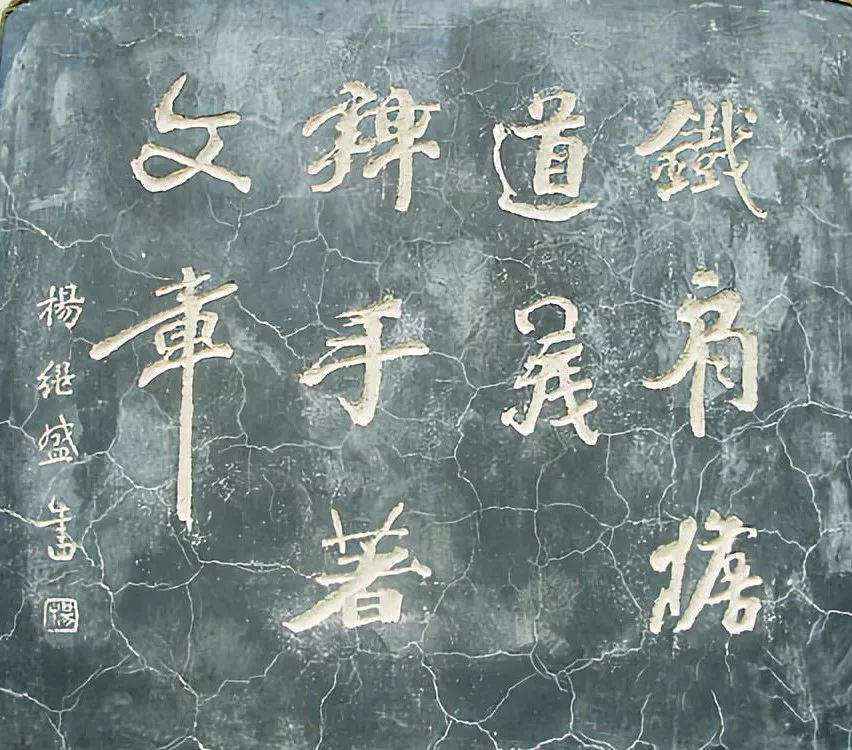 鐵肩擔
道義
辣手著
文章
楊繼盛書